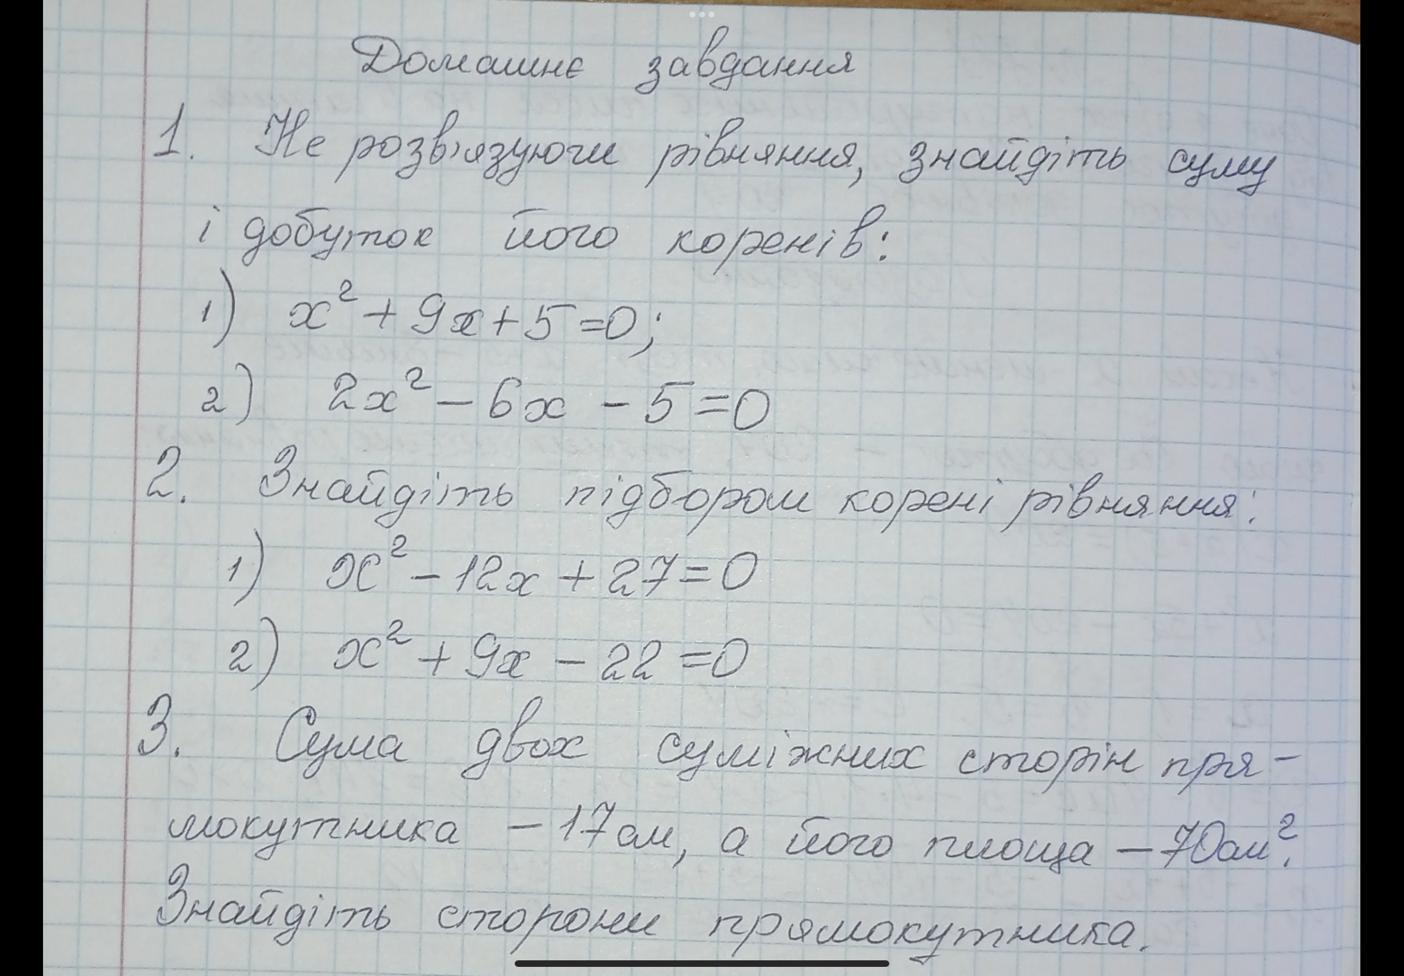 Домашнє завдання
1. Не розв'язуючи рівняння, знайдіть суму
і добуток його коренів:
1) x² + 9x + 5 = 0;
2) 2x² - 6x - 5 = 0
2. Знайдіть підбором корені рівняння:
1) x² - 12x + 27 = 0
2) x² + 9x - 22 = 0
3. Сума двох суміжних сторін пря-
мокутника - 17см, а його площа - 70см².
Знайдіть сторони прямокутника.